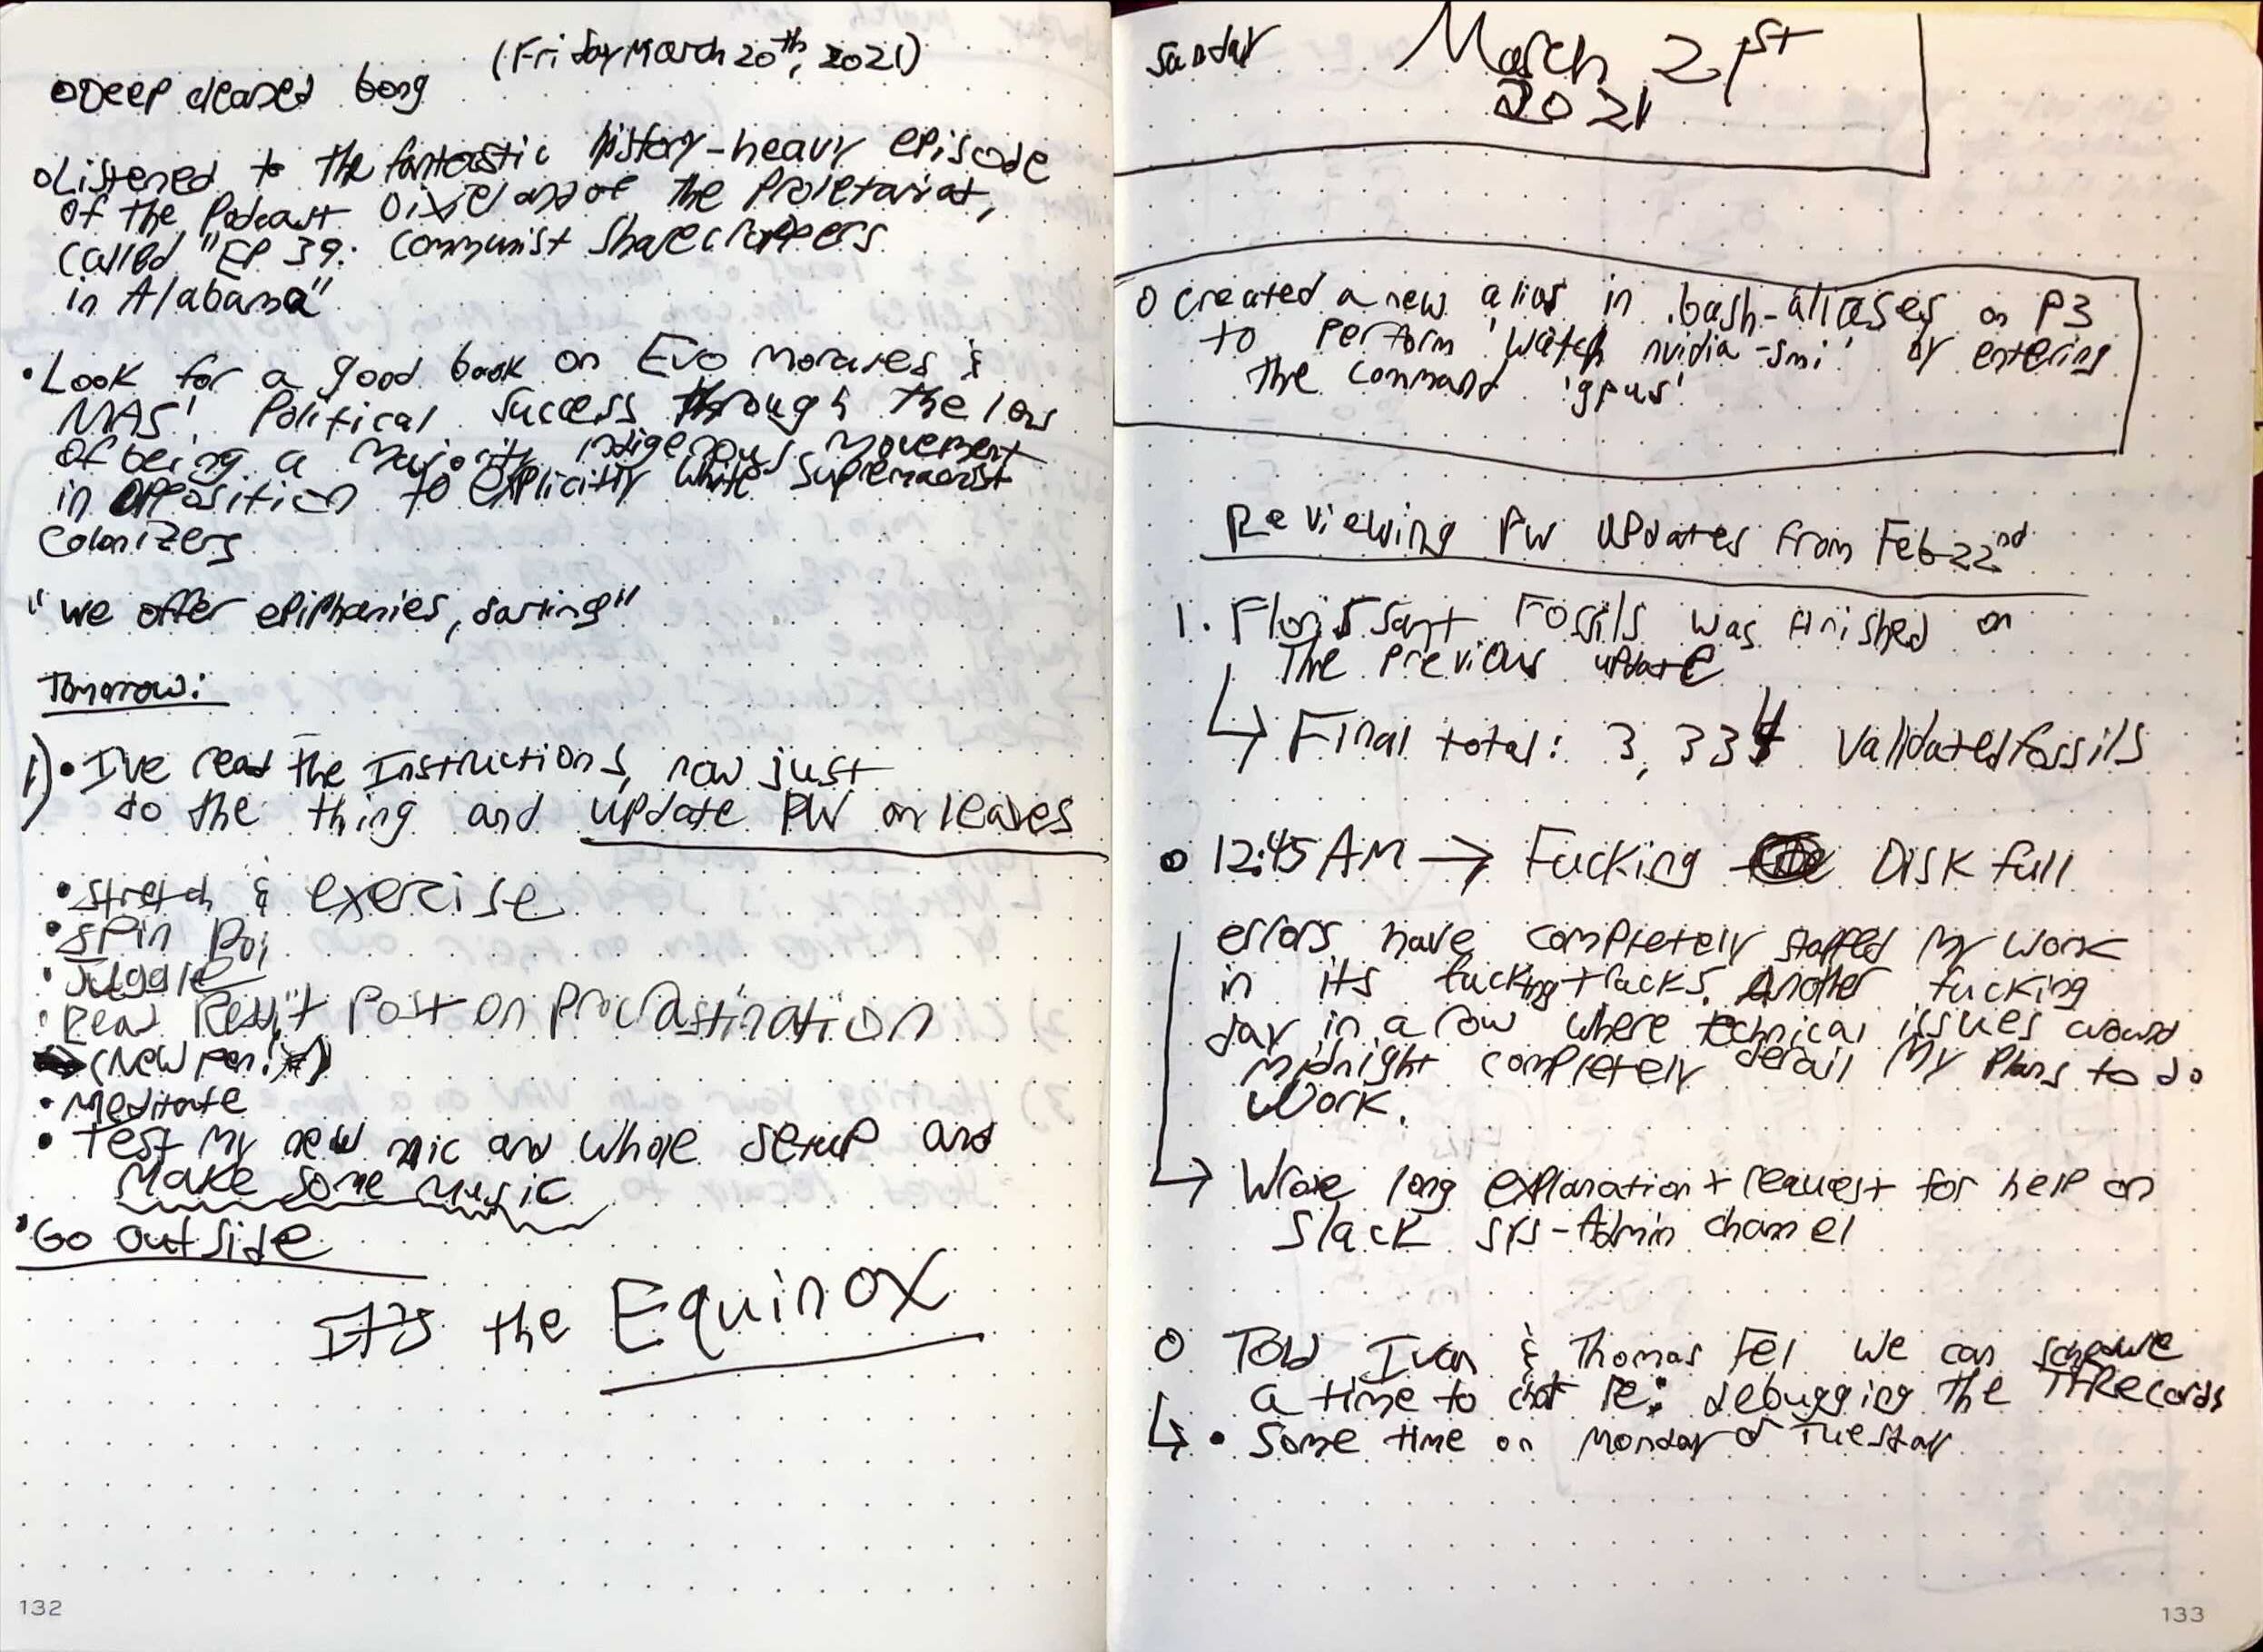 (Friday March 20th, 2021)
Deep cleaned bong
Listened to the fantastic history-heavy episode
of the Podcast Dixieland of the Proletariat,
called "EP 39: Communist Sharecroppers
in Alabama"
• Look for a good book on Evo Morales &
MAS' Political success through the lens
of being a majority indigenous movement
in opposition to explicitly white supremacist
colonizers
"we offer epiphanies, darling"
Tomorrow:
1) • I've read the Instructions, now just
do the thing and update PW on leaves
• Stretch & exercise
• Spin Poi
• Juggle
• Read Reddit Post on Procrastination
(New pen!)
• Meditate
• Test my new mic and whole setup and
make some music
• Go outside
It's the Equinox
132
Sunday March 21st
2021
o Created a new alias in .bash-aliases on P3
to perform 'watch nvidia-smi' by entering
the command 'gpus'
Reviewing PW updates from Feb 22nd
1. Florissant Fossils was finished on
the previous update
↳ Final total: 3,334 validated fossils
o 12:45 AM → Fucking Disk full
errors have completely stopped my work
in its fucking tracks. Another fucking
day in a row where technical issues around
midnight completely derail my plans to do
work.
↳ Wrote long explanation + request for help on
Slack sys-Admin channel
o Told Ivan & Thomas Fel we can schedule
a time to chat re: debugging the TFRecords
↳ • Some time on Monday or Tuesday
133